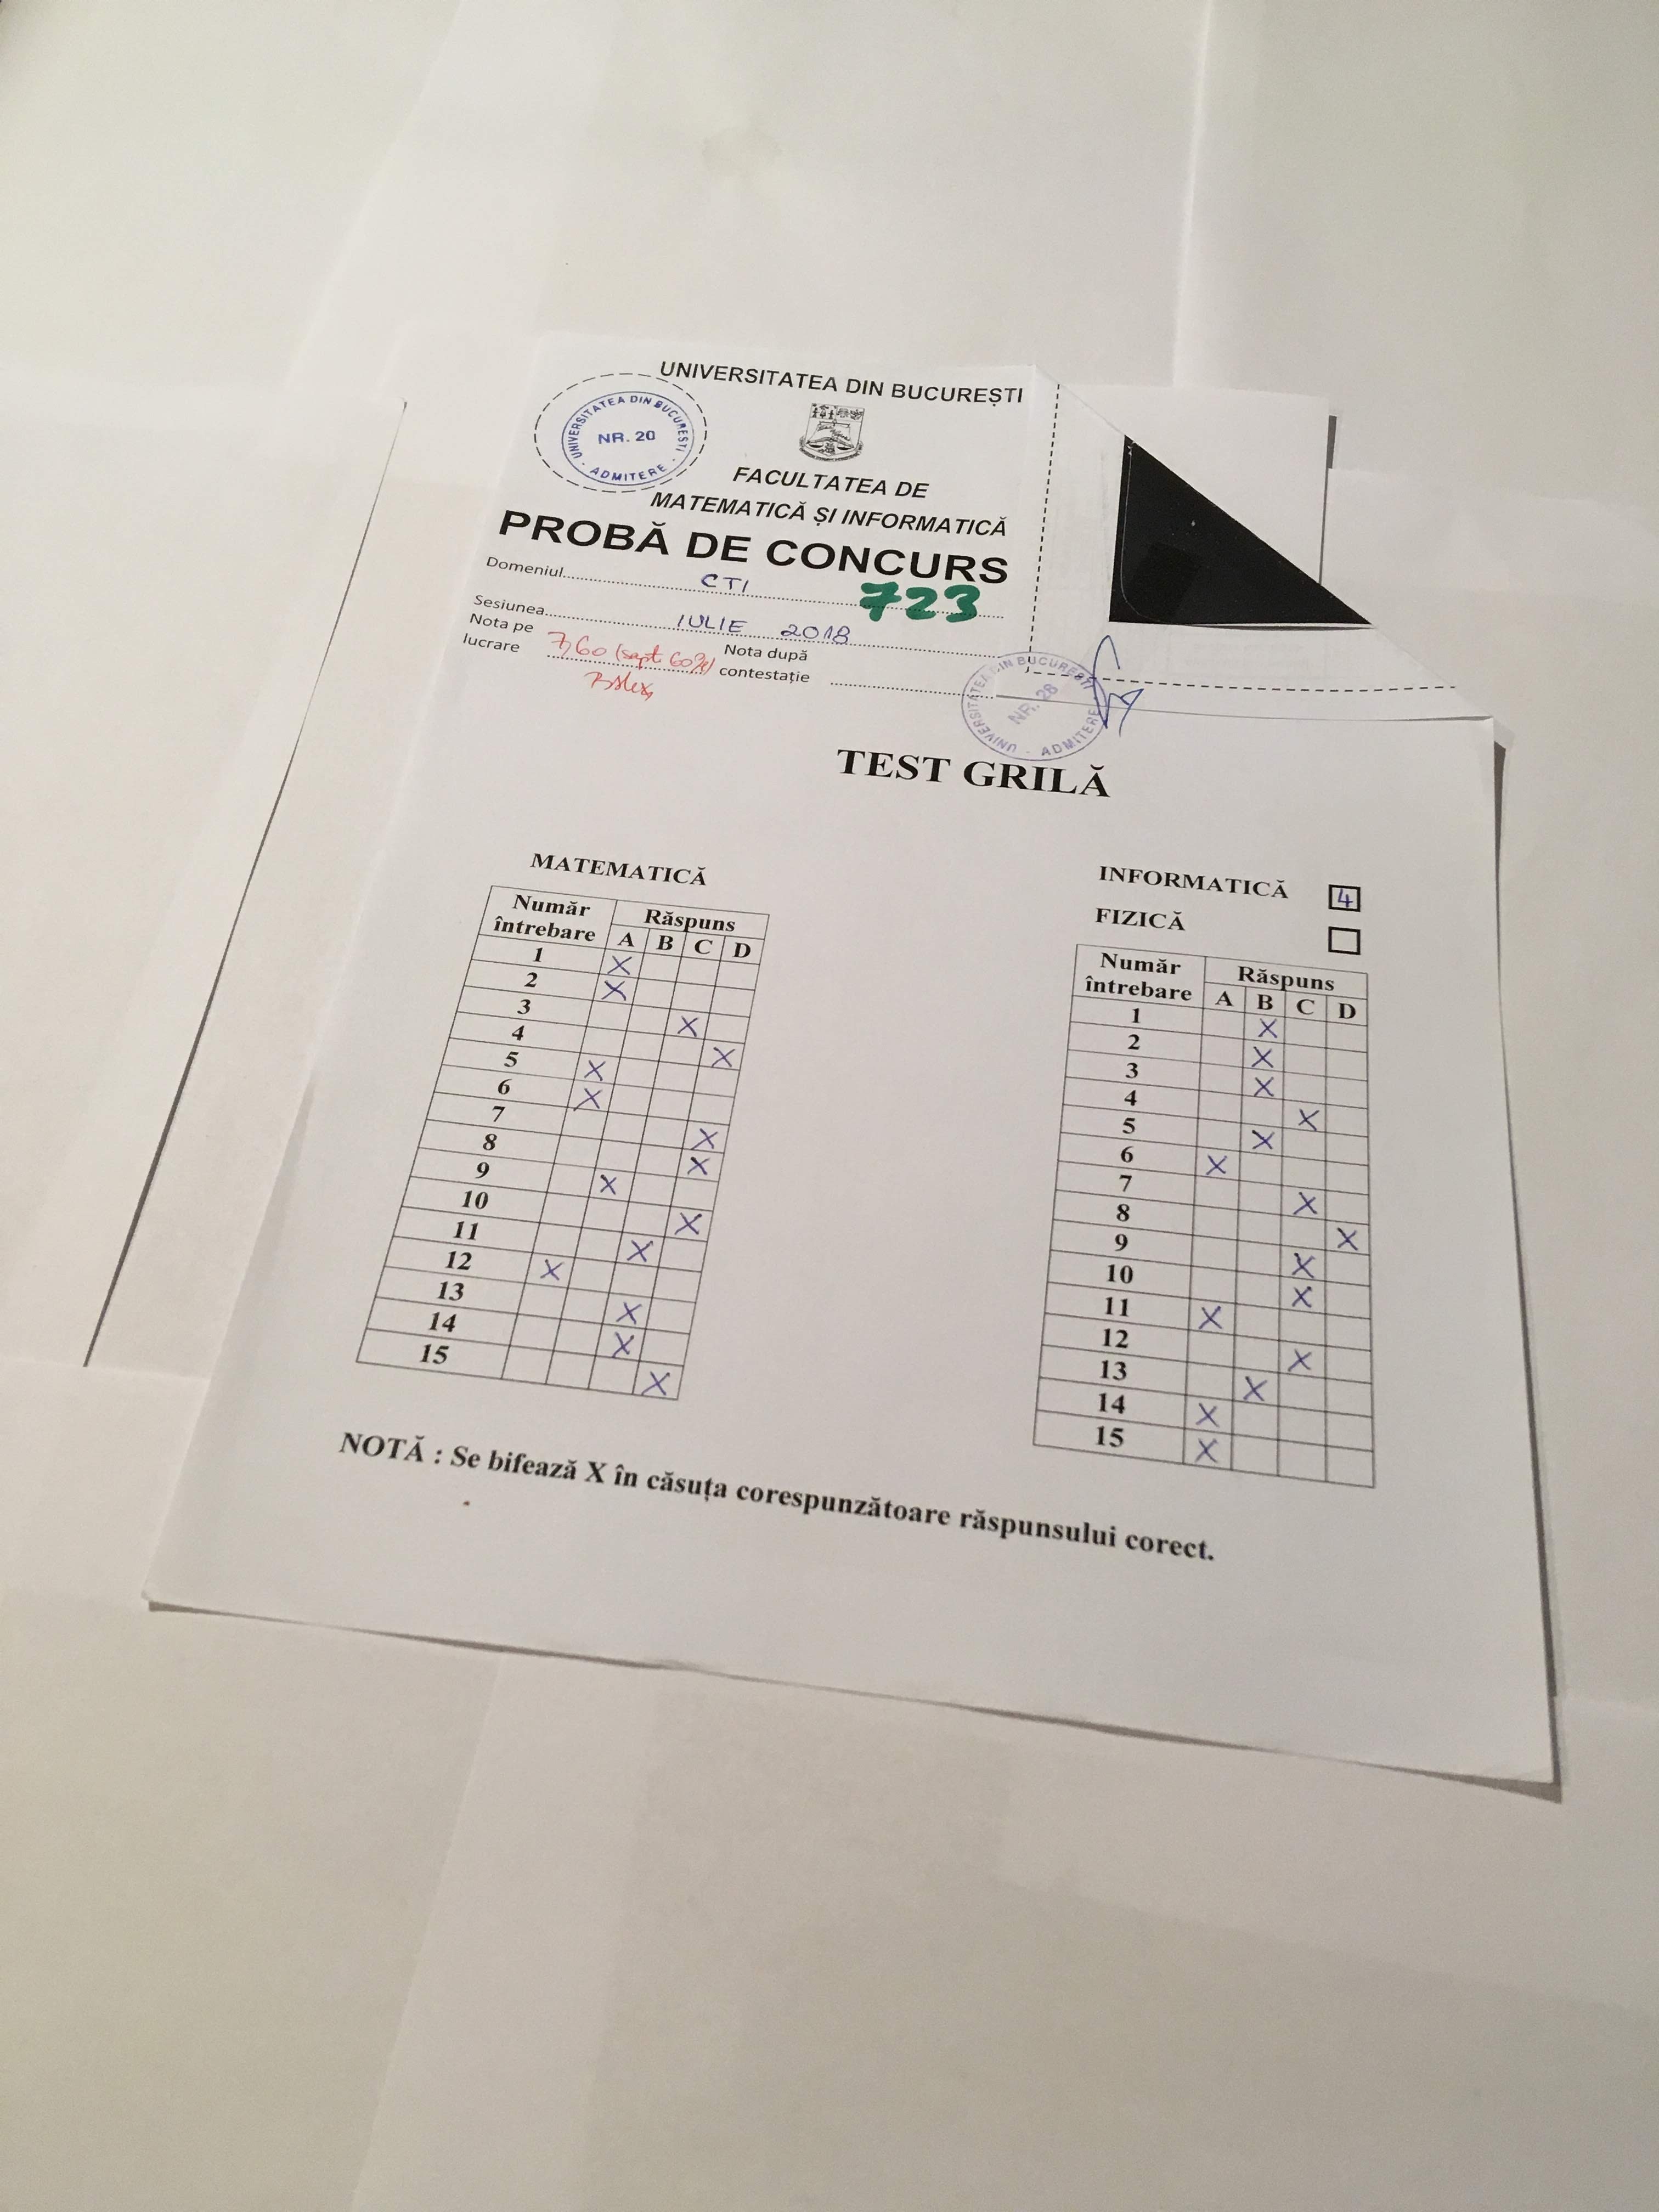 UNIVERSITATEA DIN BUCUREȘTI
UNIVERSITATEA DIN BUCUREȘTI
NR. 20
- ADMITERE -
FACULTATEA DE
MATEMATICĂ ȘI INFORMATICĂ
PROBĂ DE CONCURS
Domeniul CTI 723
Sesiunea IULIE 2018
Nota pe lucrare 7,60 (sapt 60%)
Nota după contestație
UNIVERSITATEA DIN BUCUREȘTI
NR. 28
- ADMITERE -
TEST GRILĂ
MATEMATICĂ
Număr întrebare Răspuns
A B C D
1 X
2 X
3 X
4 X
5 X
6 X
7 X
8 X
9 X
10 X
11 X
12 X
13 X
14 X
15 X
INFORMATICĂ 4
FIZICĂ
Număr întrebare Răspuns
A B C D
1 X
2 X
3 X
4 X
5 X
6 X
7 X
8 X
9 X
10 X
11 X
12 X
13 X
14 X
15 X
NOTĂ : Se bifează X în căsuța corespunzătoare răspunsului corect.